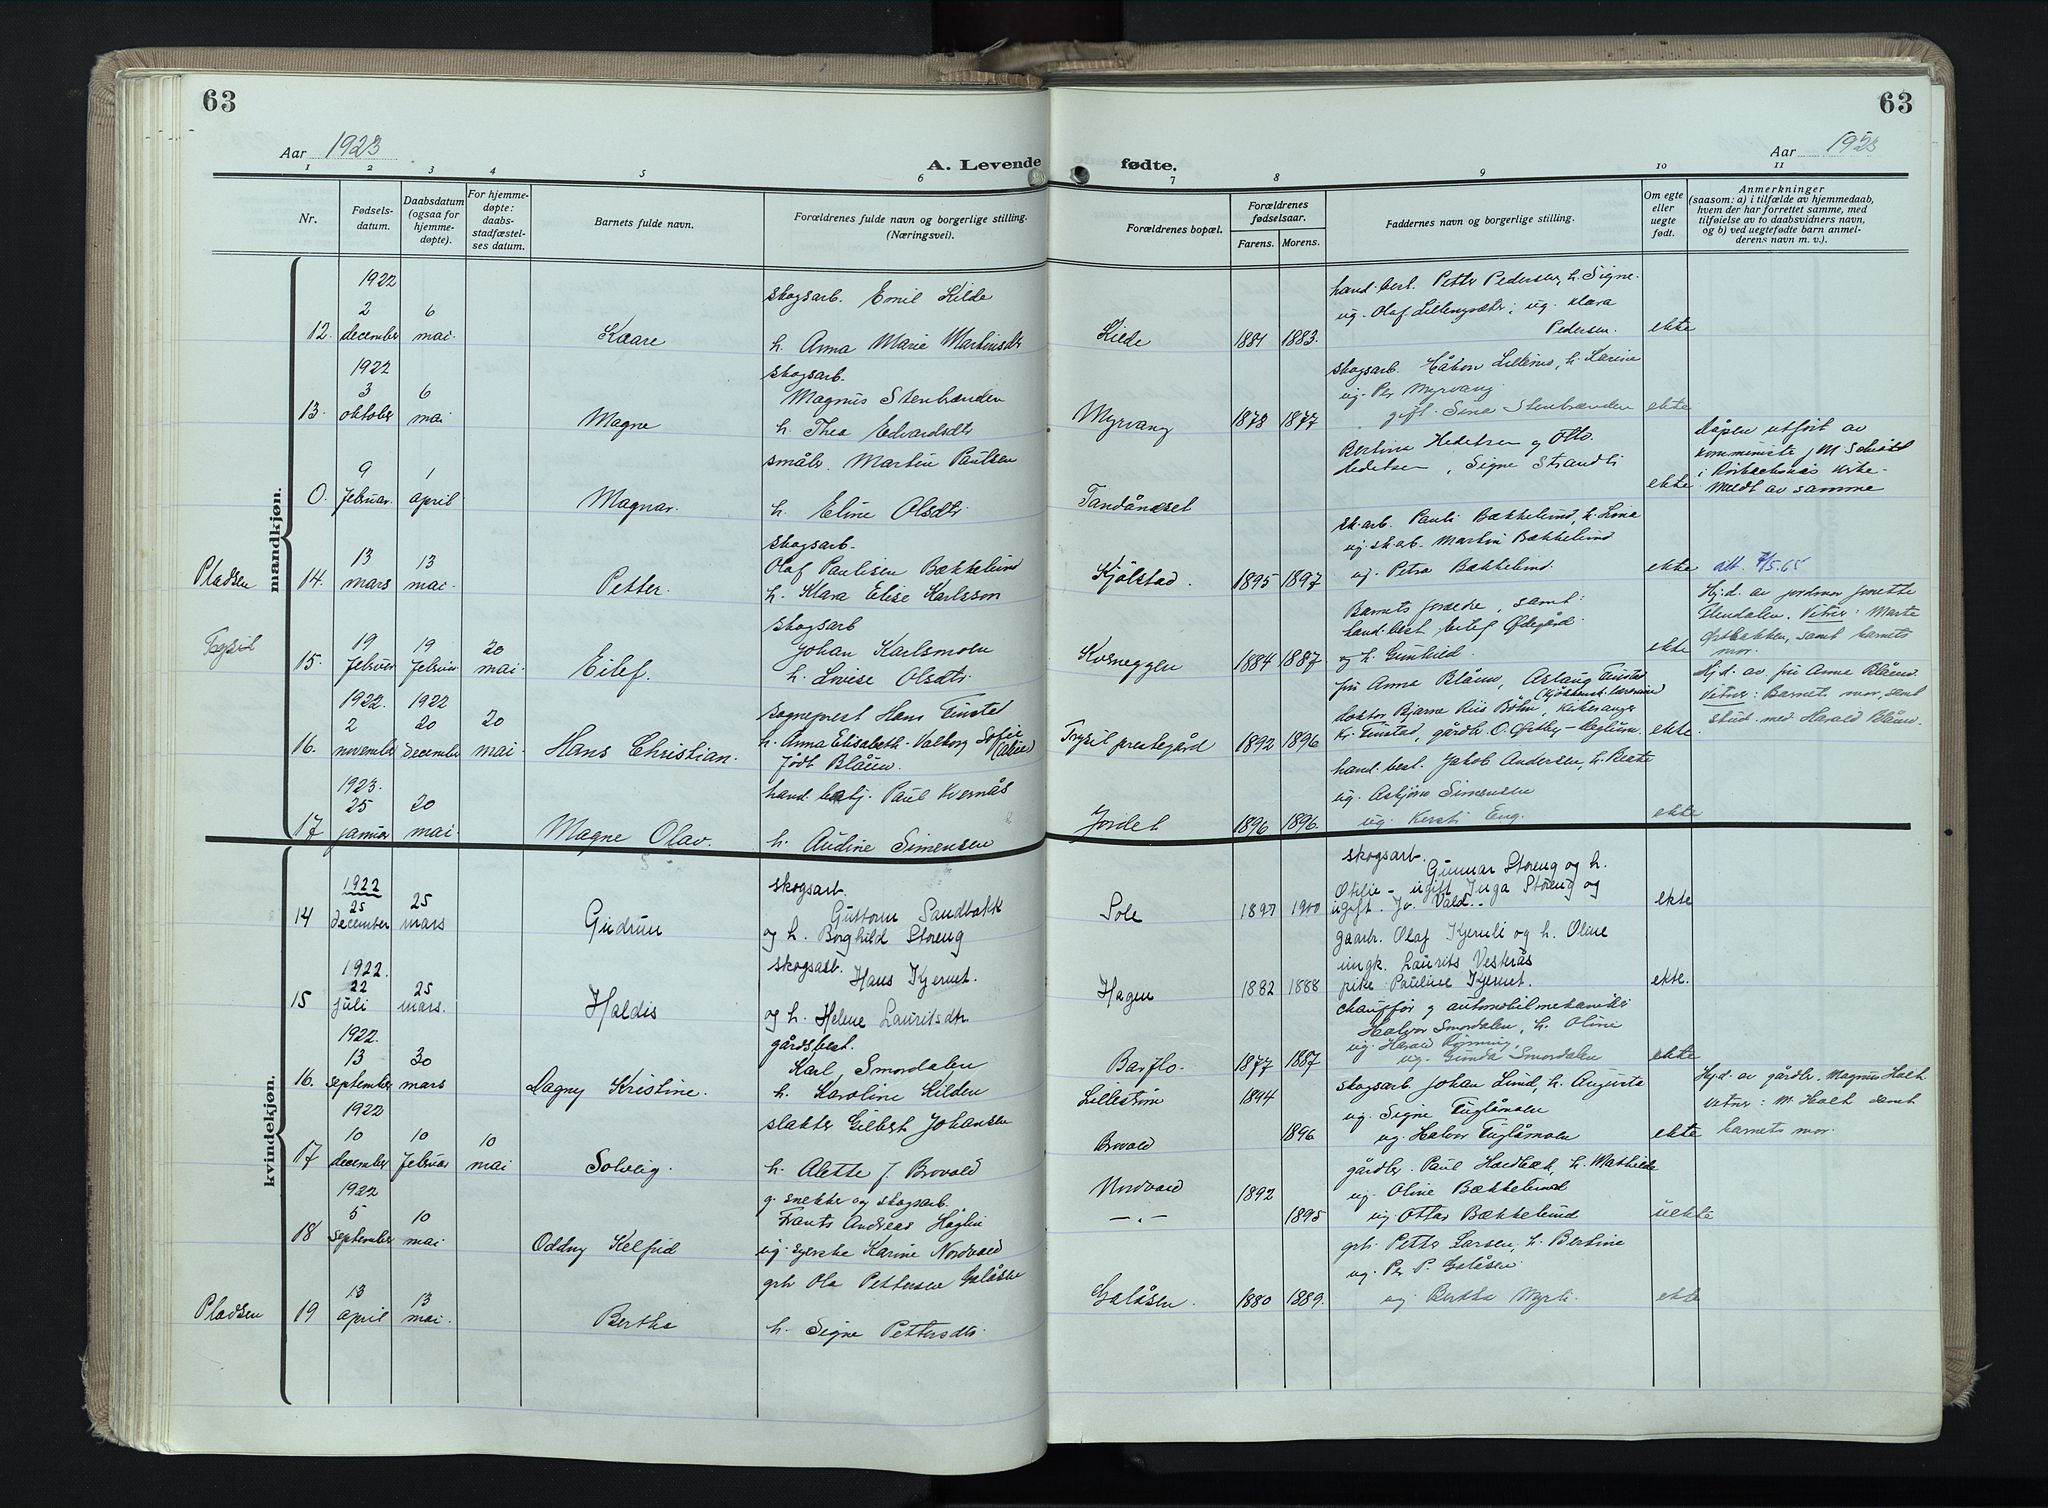 63
63
Aar 1923
A. Levende fødte.
Aar 1923
1 2 3 4 5 6 7 8 9 10 11
Nr.
Fødsels-
datum.
Daabsdatum
(ogsaa for
hjemme-
døpte).
For hjemme-
døpte:
daabs-
stadfæstel-
ses datum.
Barnets fulde navn.
Forældrenes fulde navn og borgerlige stilling.
(Næringsvei).
Forældrenes bopæl.
Forældrenes
fødselsaar.
Farens. Morens.
Faddernes navn og borgerlige stilling.
Om egte
eller
uegte
født.
Anmerkninger
(saasom: a) i tilfælde av hjemmedaab,
hvem der har forrettet samme, med
tilføielse av to daabsvidners navn,
og b) ved uegtefødte barn anmel-
derens navn m. v.).
mandkjøn.
1922
2 6
12. december mai.
Kaare
skogsarb. Emil Kilde
h. Anna Marie Martinsdtr
Kilde
1881 1883.
hand.best. Petter Pedersen, h. Signe.
ug. Olaf Lillengsæter; ug. Klara
Pedersen.
ekte
1922
3 6
13. oktober mai
Magne
skogsarb.
Magnus Stenbrænden
h. Thea Edvardsdtr
Myrvang
1878 1877
skogsarb. Håkon Lillemo, h. Karine
ug. Per Myrvang
gift. Sina Stenbrænden
ekte
9 1
0. februar. april
Magnar.
småbr. Martin Paulsen
h. Eline Olsdtr
Tandåneset
Bertine Hedetsen og Otto
Hedetsen, Signe Strandli
ekte
Dåpen utført av
i kirke-
Meldt av samme
Pladsen
13 13
14. mars mai.
Petter.
skogsarb.
Olaf Paulisen Bækkelund
h. Klara Elise Karlsson
Kjølstad.
1895 1897
sk.arb. Pauli Bækkelund, h. Lina
ug. sk.ab. Martin Bækkelund
ug. Petra Bækkelund.
ekte
Trysil
19 19 20
15. februar februar mai
Eilef.
skogsarb
Johan Karlsmoen
h. Lovise Olsdtr.
Kverneggen
1884 1887
Barnets forældre, samt:
hand.best. Eilef Ødegård.
og h. Gunhild.
ekte
Hj.d. av jordmor Jonette
Flendalen. Vitner: Marte
Østbakken, samt barnets
mor.
1922. 1922
2 20 20
16. november december mai
Hans Christian.
sogneprest Hans Finstad
h. Anna Elisabeth-Valborg Sofie
født Blåun.
Trysil prestegård
1892 1896
fru Anna Blåun, Aslaug Finstad
doktor Bjarne Riis Bøhn, kirkesanger
Kr. Finstad, gårdb. O. Østby-Deglum.
ekte.
Hj.d. av fru Anna Blåun.
Vitner: Barnets mor, samt
stud. med Harald Blåun.
1923.
25 20
17 januar mai.
Magne Olav.
hand. bestj. Paul Kvernås
h. Audine Simensen
Jordet
1896 1896.
hand. best. Jakob Andersen, h. Beate
ug. Asbjørn Simensen
ug. Kersti Eng.
ekte
kvindekjøn.
1922
25 25
14 december mars
Gudrun
skogsarb.
Guttorm Sandbakk
og h. Borghild Storeng
Sole
1897 1900
skogsarb.
Gunnar Storeng og h.
Otilie – ugift Inga Storeng og
ugift. Jo. Vald..
ekte
1922.
22 25
15 juli mars.
Haldis
skogsarb.
Hans Kjernet.
og h. Helene Lauritsdtr.
Hagen
1882 1888
gaarbr. Olaf Kjernli og h. Oline
ungk. Laurits Vesterås
pike Pauline Kjernet.
ekte.
1922.
13 30
16. september mars
Dagny Kristine.
gårdsbest.
Karl Smordalen
h. Karoline Kilden
Barflo.
1877 1887
chauffør og automobilmekaniker
Halvor Smordalen, h. Oline
ug. Harald Rønning,
ug. Gunda Smordalen
ekte
1922
10 10 10
17 december februar mai
Solveig.
slakter Gilbert Johansen
h. Alette J. Brovold
Lillestrøm
Brovold
1894
1896
skogsarb. Johan Lund, h. Augusta
ug. Signe Fuglåmoen
ug. Halvor Fuglåmoen
ekte
Hj.d. av gårdbr. Magnus Holt
Vitner: M. Holt samt
barnets mor.
1922
5 10
18 september mai
Oddny Kelfrid
g. snekker og skogsarb.
Frants Andreas Höglin
ug. syerske Karine Nordvold
Nordvold
—.—
1892
1895
gårdbr. Paul Hordbæk, h. Mathilde
ug. Oline Bækkelund
ug. Ottar Bækkelund.
uekte
Pladsen
13 13
19 april mai.
Bertha
grb. Ola Pettersen Galåsen
h. Signe Pettersdtr.
Galåsen.
1880 1889.
grb. Petter Larsen, h. Bertine
ug. Per P. Galåsen.
ug Bertha Myrli.
ekte